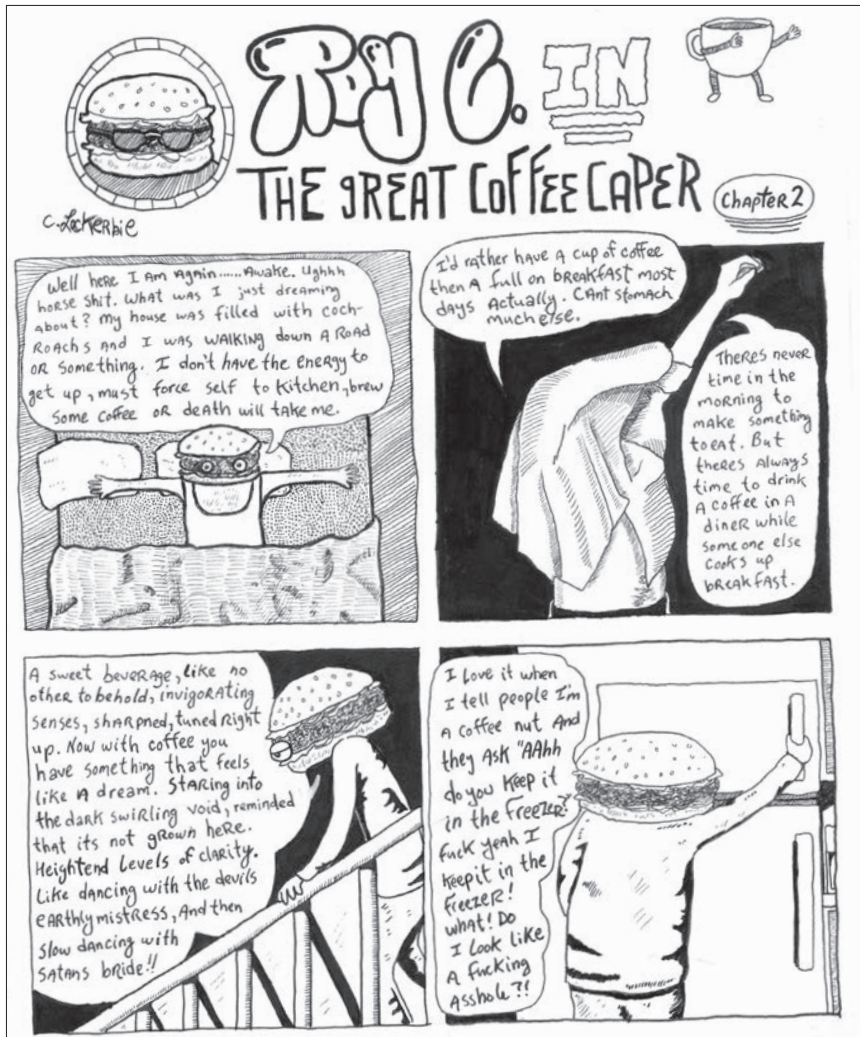 Roy B. IN
THE gREAT COFFEE CAPER
Chapter 2
C. Lockerbie
Well here I Am Again......Awake. Ughhh
horse shit. What was I just dreaming
about? My house was filled with coch-
Roachs and I was walking down a Road
or something. I don't have the energy to
get up, must force self to kitchen, brew
some coffee or death will take me.
I'd rather have a cup of coffee
then a full on breakfast most
days actually. Cant stomach
much else.
Theres never
time in the
morning to
make something
to eat. But
theres always
time to drink
a coffee in a
diner while
someone else
cooks up
breakfast.
A sweet beverage, like no
other to behold, invigorating
senses, sharpned, tuned right
up. Now with coffee you
have something that feels
like a dream. Staring into
the dark swirling void, reminded
that its not grown here.
Heightend levels of clarity.
Like dancing with the devils
earthly mistress, And then
slow dancing with
Satans bride!!
I love it when
I tell people I'm
a coffee nut And
they Ask "AAhh
do you keep it
in the freezer?"
Fuck yeah I
keep it in the
freezer!
what! Do
I look like
a fucking
Asshole?!